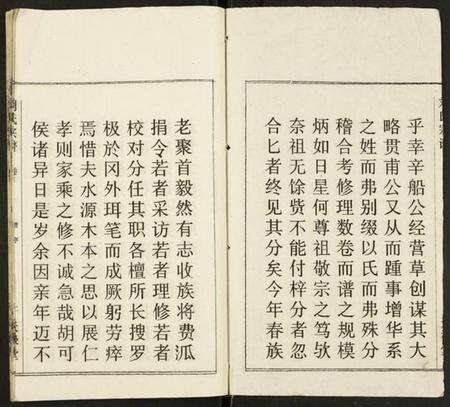 乎幸辛船公经营草创谋其大
略贯甫公又从而踵事增华系
之姓而弗别缀以氏而弗殊分
稽合考修理数卷而谱之规模
炳如日星何尊祖敬宗之笃欤
奈祖无馀赀不能付梓分者忽
合匕者终见其分矣今年春族
老聚首毅然有志收族将费派
捐令若者采访若者理修若者
校对分任其职各擅所长搜罗
极於冈外珥笔而成厥躬劳瘁
焉惜夫水源木本之思以展仁
孝则家乘之修不诚急哉胡可
侯诸异日是岁余因亲年迈不